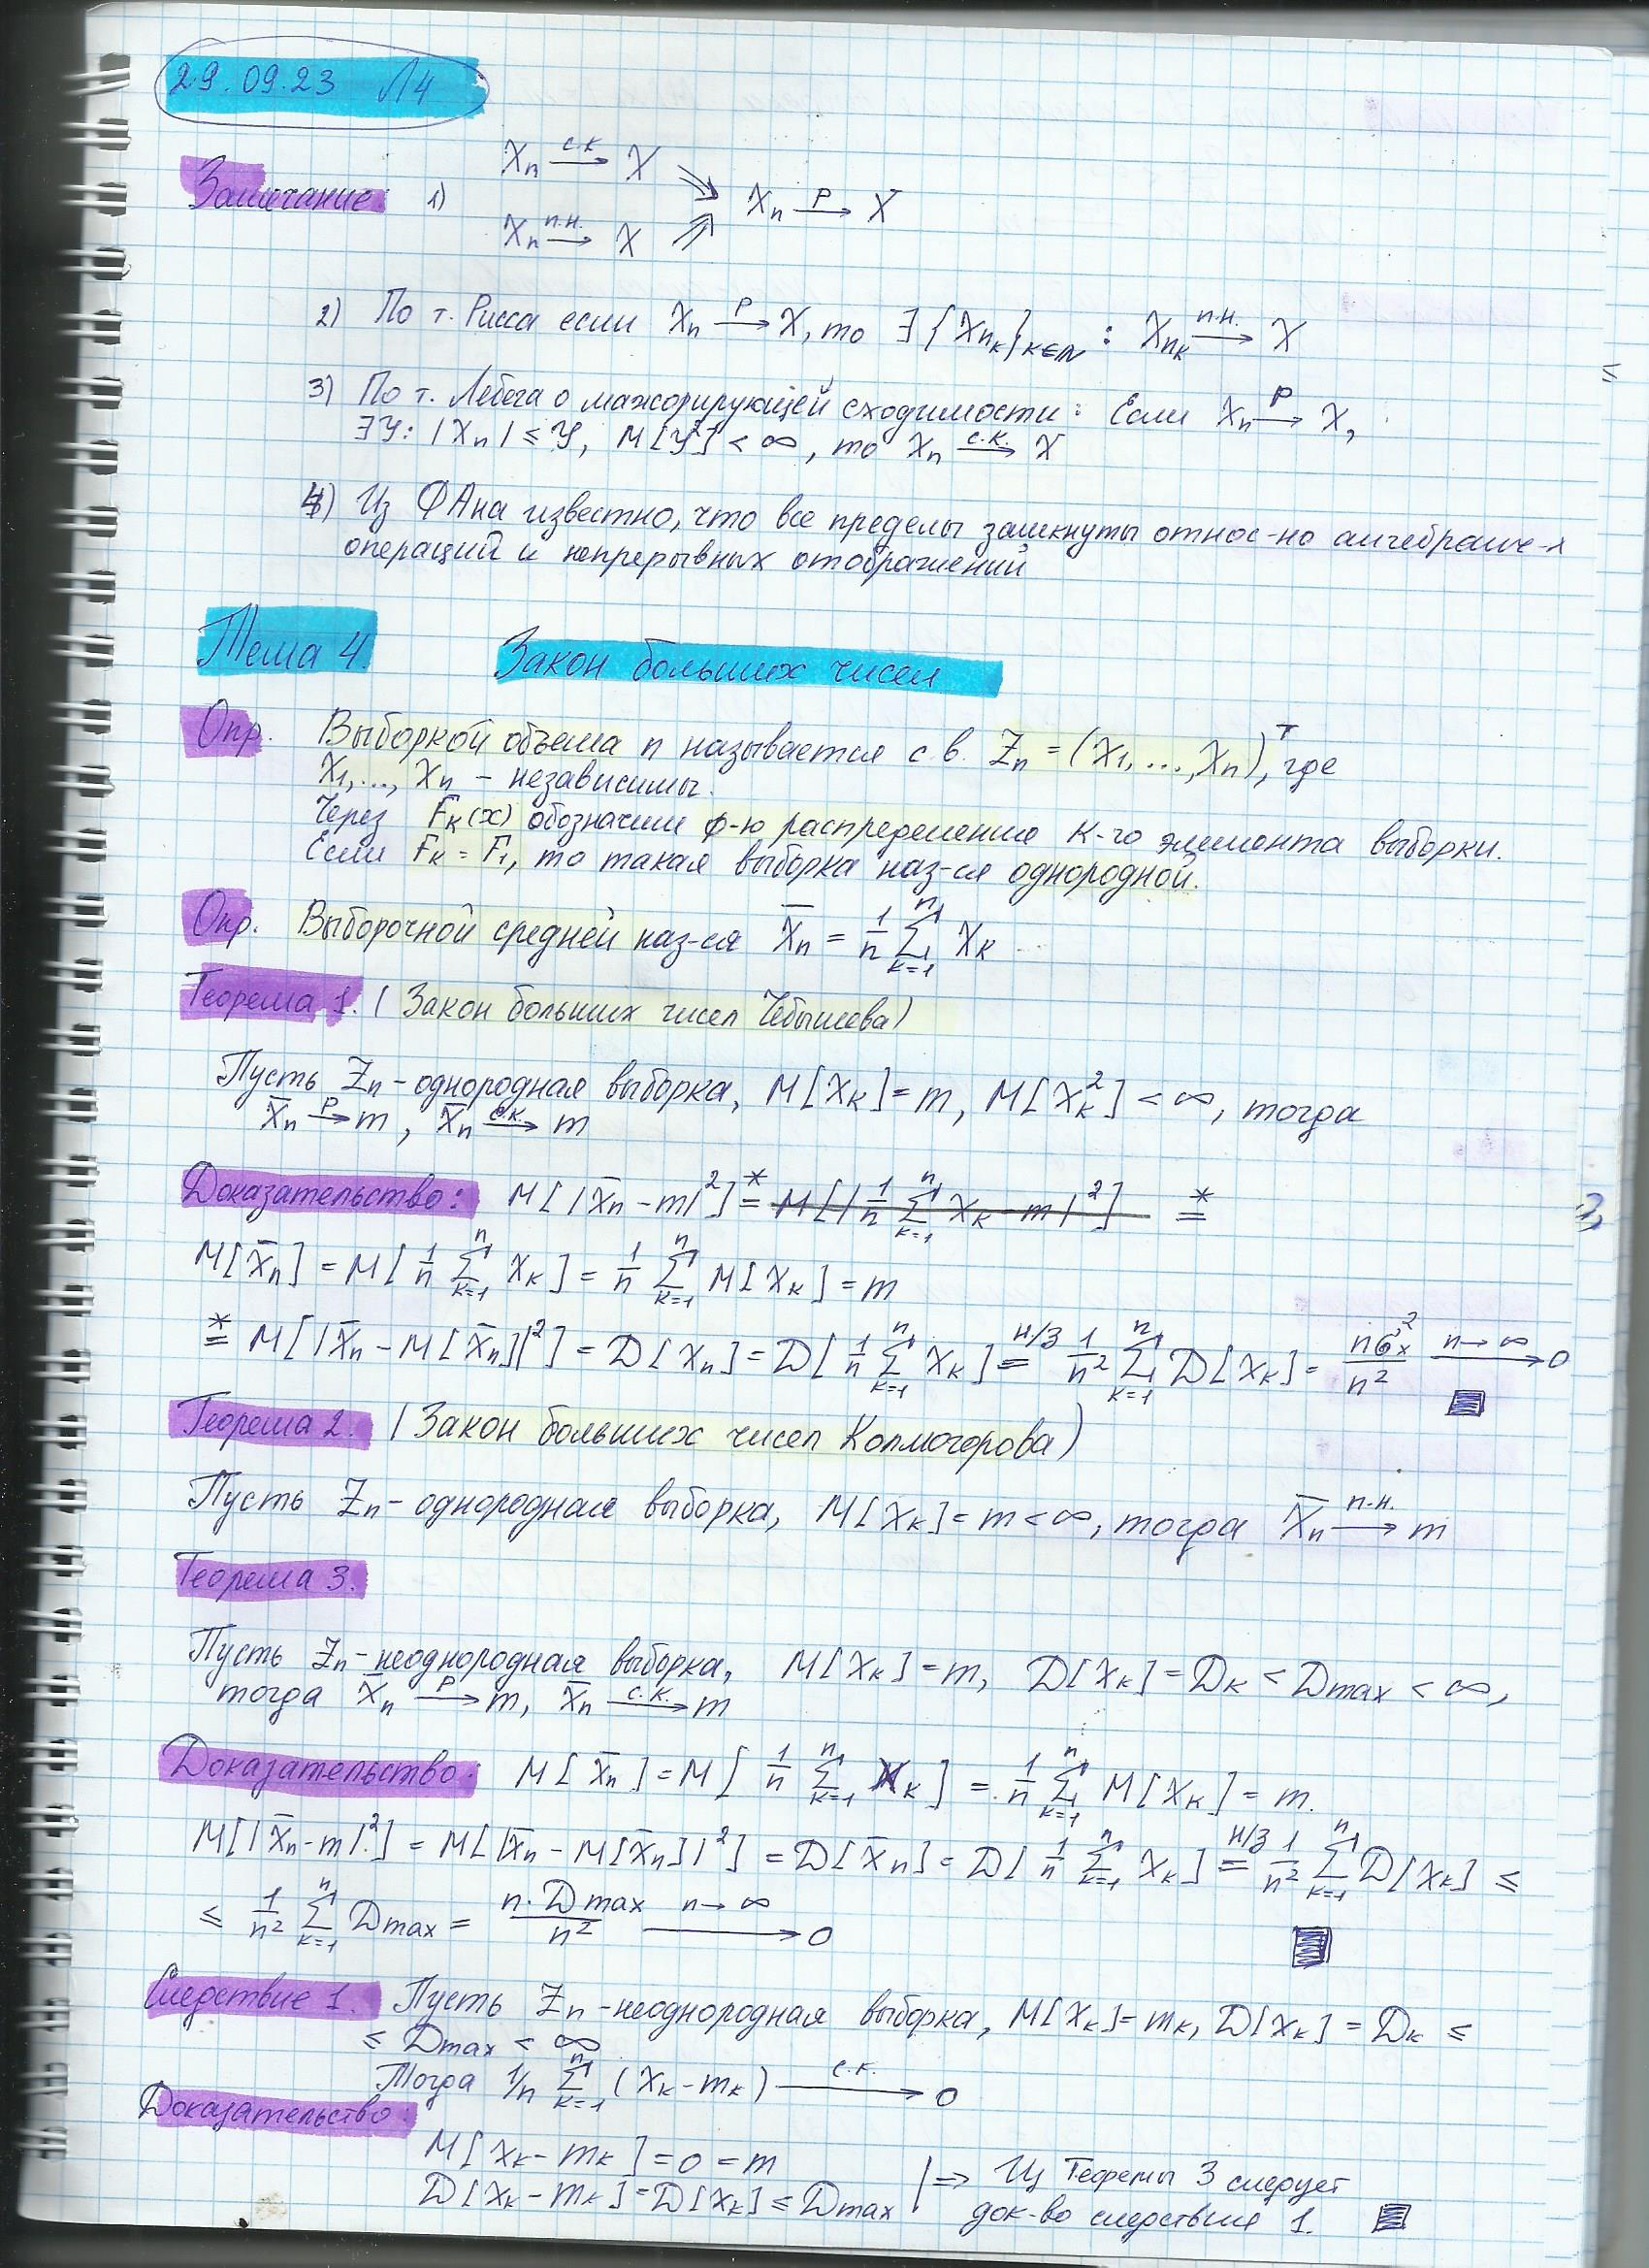 29.09.23 Л4
Xₙ —с.к→ X
Замечание: 1) ⇒ Xₙ —P→ X
Xₙ —п.н.→ X
2) По т. Рисса если Xₙ —P→ X, то ∃ {Xₙₖ}ₖ∈ℕ : Xₙₖ —п.н.→ X
3) По т. Лебега о мажорирующей сходимости: Если Xₙ —P→ X,
∃Y: |Xₙ| ≤ Y, M[Y²] < ∞, то Xₙ —с.к.→ X
4) Из ФАна известно, что все пределы замкнуты относ-но алгебраиче-х
операций и непрерывных отображений
Тема 4. Закон больших чисел
Опр. Выборкой объема n называется с.в. Zₙ = (X₁, ..., Xₙ)ᵀ, где
X₁, ..., Xₙ – независимы.
Через Fₖ(x) обозначим ф-ю распределение к-го элемента выборки.
Если Fₖ = F₁, то такая выборка наз-ся однородной.
Опр. Выборочной средней наз-ся X̄ₙ = 1/n ∑ₖ₌₁ⁿ Xₖ
Теорема 1. (Закон больших чисел Чебышева)
Пусть Zₙ – однородная выборка, M[Xₖ] = m, M[Xₖ²] < ∞, тогда
X̄ₙ —P→ m, X̄ₙ —с.к.→ m
Доказательство: M[|X̄ₙ - m|²] =* M[|1/n ∑ₖ₌₁ⁿ Xₖ - m|²] =*
M[X̄ₙ] = M[1/n ∑ₖ₌₁ⁿ Xₖ] = 1/n ∑ₖ₌₁ⁿ M[Xₖ] = m
=* M[|X̄ₙ - M[X̄ₙ]|²] = D[Xₙ] = D[1/n ∑ₖ₌₁ⁿ Xₖ] =ᴴ/ᶻ 1/n² ∑ₖ₌₁ⁿ D[Xₖ] = nσₓ²/n² —n→∞→ 0
Теорема 2. (Закон больших чисел Колмогорова)
Пусть Zₙ – однородная выборка, M[Xₖ] = m < ∞, тогда X̄ₙ —п.н.→ m
Теорема 3.
Пусть Zₙ – неоднородная выборка, M[Xₖ] = m, D[Xₖ] = Dₖ < Dmax < ∞,
тогда X̄ₙ —P→ m, X̄ₙ —с.к.→ m
Доказательство. M[X̄ₙ] = M[1/n ∑ₖ₌₁ⁿ Xₖ] = 1/n ∑ₖ₌₁ⁿ M[Xₖ] = m.
M[|X̄ₙ - m|²] = M[|X̄ₙ - M[X̄ₙ]|²] = D[X̄ₙ] = D[1/n ∑ₖ₌₁ⁿ Xₖ] =ᴴ/ᶻ 1/n² ∑ₖ₌₁ⁿ D[Xₖ] ≤
≤ 1/n² ∑ₖ₌₁ⁿ Dmax = n·Dmax/n² —n→∞→ 0
Следствие 1. Пусть Zₙ – неоднородная выборка, M[Xₖ] = mₖ, D[Xₖ] = Dₖ ≤
≤ Dmax < ∞
Тогда 1/n ∑ₖ₌₁ⁿ (Xₖ - mₖ) —с.к.→ 0
Доказательство:
M[Xₖ - mₖ] = 0 = m
D[Xₖ - mₖ] = D[Xₖ] ≤ Dmax | ⇒ Из Теоремы 3 следует
док-во следствия 1.